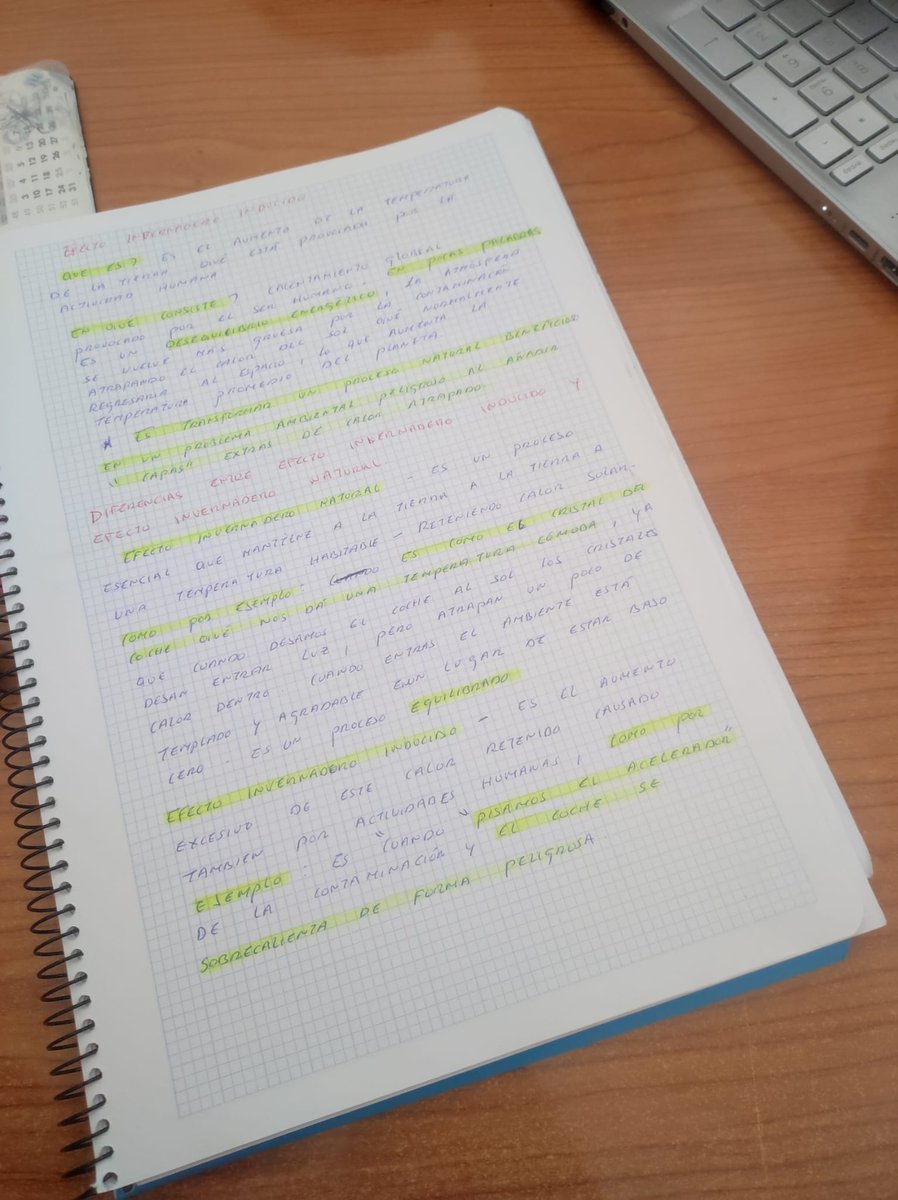 EFECTO INVERNADERO INDUCIDO
QUE ES? ES EL AUMENTO DE LA TEMPERATURA
DE LA TIERRA QUE ESTÁ PROVOCADO POR LA
ACTIVIDAD HUMANA
EN QUÉ CONSISTE? CALENTAMIENTO GLOBAL
PROVOCADO POR EL SER HUMANO. EN POCAS PALABRAS
ES UN DESEQUILIBRIO ENERGÉTICO, LA ATMOSFERA
SE VUELVE MÁS GRUESA POR LA CONTAMINACIÓN
ATRAPANDO EL CALOR DEL SOL QUE NORMALMENTE
REGRESARIA AL ESPACIO, LO QUE AUMENTA LA
TEMPERATURA PROMEDIO DEL PLANETA.
* ES TRANSFORMAR UN PROCESO NATURAL BENEFICIOSO
EN UN PROBLEMA AMBIENTAL PELIGROSO AL AÑADIR
"CAPAS" EXTRAS DE CALOR ATRAPADO.
DIFERENCIAS ENTRE EFECTO INVERNADERO INDUCIDO Y
EFECTO INVERNADERO NATURAL.
EFECTO INVERNADERO NATURAL - ES UN PROCESO
ESENCIAL QUE MANTIENE A LA TIERRA A LA TIERRA A
UNA TEMPERATURA HABITABLE - RETENIENDO CALOR SOLAR.
COMO POR EJEMPLO. ES COMO EL CRISTAL DEL
COCHE QUE NOS DÁ UNA TEMPERATURA CÓMODA, YA
QUE CUANDO DEJAMOS EL COCHE AL SOL LOS CRISTALES
DEJAN ENTRAR LUZ, PERO ATRAPAN UN POCO DE
CALOR DENTRO. CUANDO ENTRAS EL AMBIENTE ESTÁ
TEMPLADO Y AGRADABLE EN LUGAR DE ESTAR BAJO
CERO. ES UN PROCESO EQUILIBRADO
EFECTO INVERNADERO INDUCIDO - ES EL AUMENTO
EXCESIVO DE ESTE CALOR RETENIDO CAUSADO
TAMBIEN POR ACTIVIDADES HUMANAS, COMO POR
EJEMPLO. ES "CUANDO" PISAMOS EL ACELERADOR"
DE LA CONTAMINACIÓN Y EL COCHE SE
SOBRECALIENTA DE FORMA PELIGROSA.